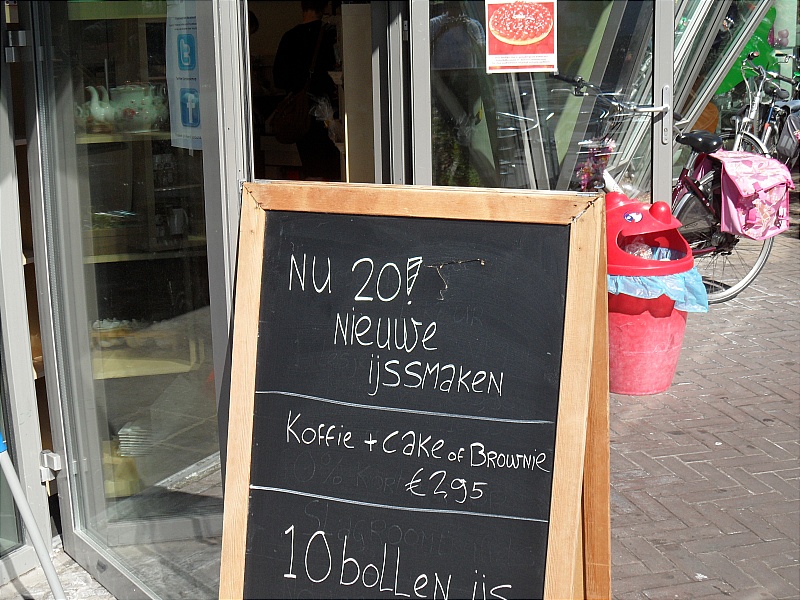 NU 20!
NIEUWE
ijSSMAKEN
Koffie + CAKE of BROWNIE
€ 2,95
10 bolLEN ijs